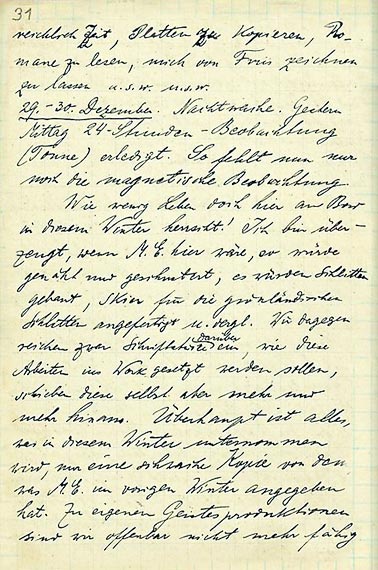 31
reichlich Zeit, Platten zu kopieren, Ro-
mane zu lesen, mich von Friis zeichnen
zu lassen u.s.w. u.s.w.
29.-30. Dezember. Nachtwache. Gestern
Mittag 24-Stunden-Beobachtung
(Tonne) erledigt. So fehlt nun nur
noch die magnetische Beobachtung.
Wie wenig Leben doch hier an Bord
in diesem Winter herrscht! Ich bin über-
zeugt, wenn M.E. hier wäre, es würde
genäht und geschustert, es würden Schlitten
gebaut, Skier für die grönländischen
Schlitten angefertigt u. dergl. Wir dagegen
reichen zwar ein, wie diese
darüber
Arbeiten ins Werk gesetzt werden sollen,
schieben diese selbst aber mehr und
mehr hinaus. Überhaupt ist alles,
was in diesem Winter unternommen
wird, nur eine schwache Kopie von dem
was M.E. im vorigen Winter angegeben
hat. Zu eigenen Geistesproduktionen
sind wir offenbar nicht mehr fähig